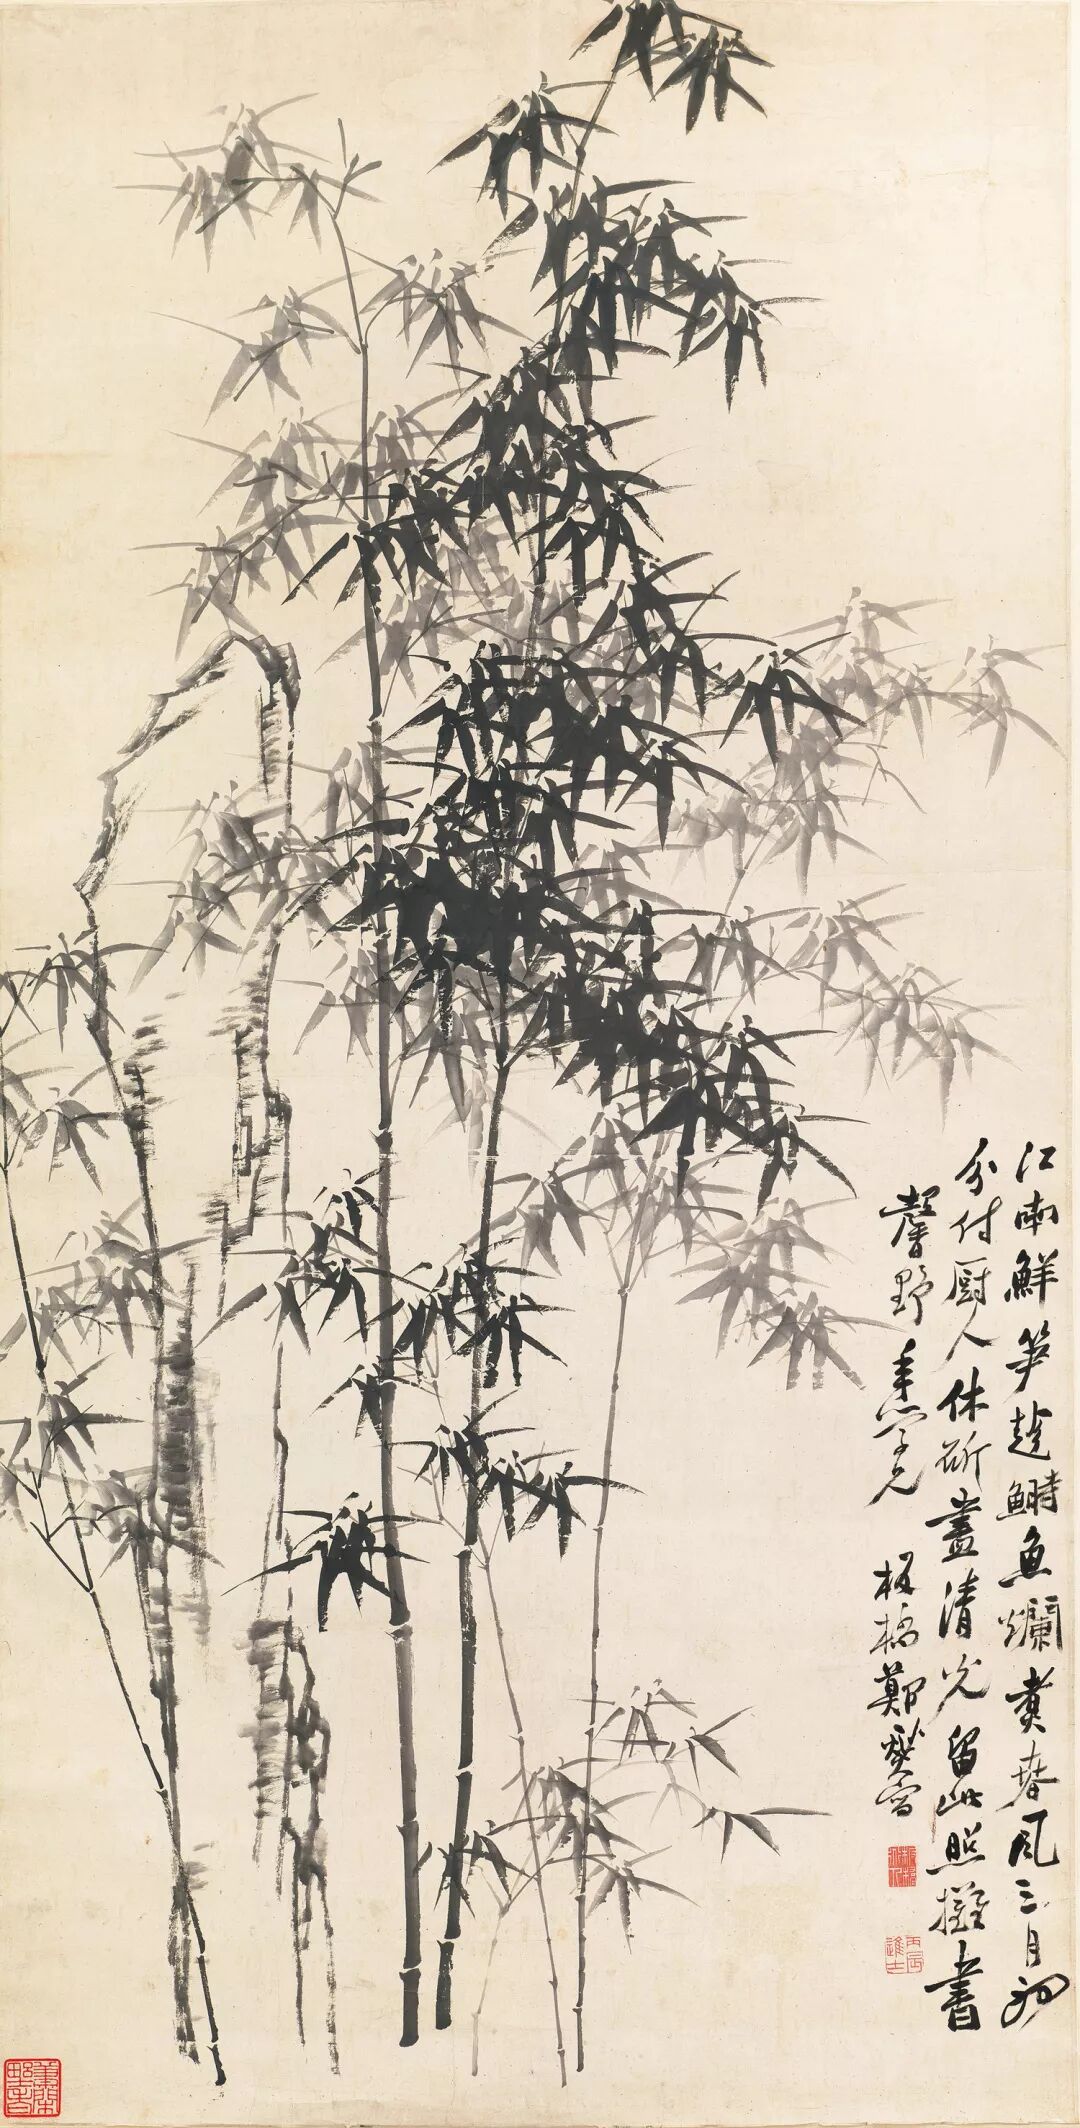 江南鮮笋趁鰣魚爛煮春風三月初
分付厨人休斫盡清光留此照攤書
馨野年學兄 板橋鄭燮寫
丙辰進士